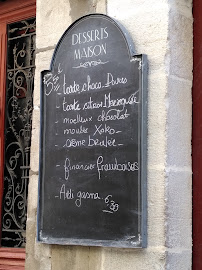 DESSERTS
MAISON
- tarte choco Poires
- tarte citron Meringuée
- moelleux chocolat
- moulin Koko
- crème Brulée
- financier framboises
- Asti gasma
6,50